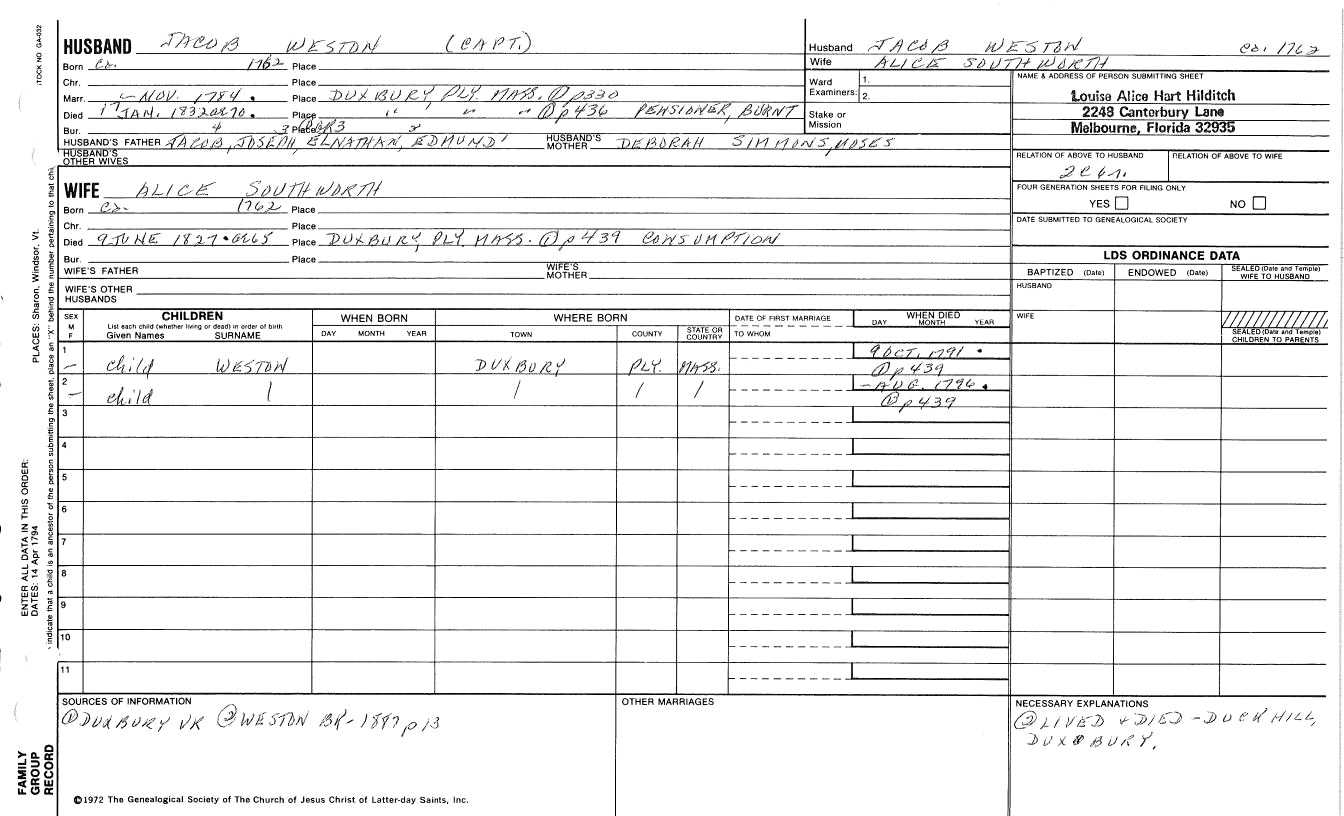 HUSBAND JACOB WESTON (CAPT.)
Born ca. 1762 Place
Chr. Place
Marr. - NOV. 1784. Place DUXBURY, PLY. MASS. ① p330
Died 17 JAN. 1832 ae 70. Place " " " ① p436 PENSIONER, BURNT
Bur. Place
HUSBAND'S FATHER JACOB, JOSEPH, ELNATHAN, EDMUND HUSBAND'S MOTHER DEBORAH SIMMONS, MOSES
4 3 2
HUSBAND'S OTHER WIVES
WIFE ALICE SOUTHWORTH
Born ca. 1762 Place
Chr. Place
Died 9 JUNE 1827. ae 65 Place DUXBURY, PLY. MASS. ① p439 CONSUMPTION
Bur. Place
WIFE'S FATHER WIFE'S MOTHER
WIFE'S OTHER HUSBANDS
Husband JACOB WESTON ca. 1762
Wife ALICE SOUTHWORTH
Ward Examiners: 1.
2.
Stake or Mission
NAME & ADDRESS OF PERSON SUBMITTING SHEET
Louise Alice Hart Hilditch
2248 Canterbury Lane
Melbourne, Florida 32935
RELATION OF ABOVE TO HUSBAND RELATION OF ABOVE TO WIFE
FOUR GENERATION SHEETS FOR FILING ONLY
YES NO
DATE SUBMITTED TO GENEALOGICAL SOCIETY
LDS ORDINANCE DATA
BAPTIZED (Date) ENDOWED (Date) SEALED (Date and Temple) WIFE TO HUSBAND
HUSBAND
WIFE
SEALED (Date and Temple) CHILDREN TO PARENTS
SEX M F CHILDREN WHEN BORN WHERE BORN DATE OF FIRST MARRIAGE WHEN DIED
List each child (whether living or dead) in order of birth
Given Names SURNAME DAY MONTH YEAR TOWN COUNTY STATE OR COUNTRY TO WHOM DAY MONTH YEAR
1 - child WESTON DUXBURY PLY. MASS. 9 OCT. 1791.
① p439
2 - child - AUG. 1796.
① p439
3
4
5
6
7
8
9
10
11
SOURCES OF INFORMATION
① DUXBURY VR ② WESTON BK - 1887 p13
OTHER MARRIAGES
NECESSARY EXPLANATIONS
② LIVED & DIED - DUCK HILL,
DUXBURY.
©1972 The Genealogical Society of The Church of Jesus Christ of Latter-day Saints, Inc.
FAMILY GROUP RECORD
ENTER ALL DATA IN THIS ORDER:
DATES: 14 Apr 1794
PLACES: Sharon, Windsor, Vt.
indicate that a child is an ancestor of the person submitting the sheet, place an "X" behind the number pertaining to that chi
STOCK NO GA-032